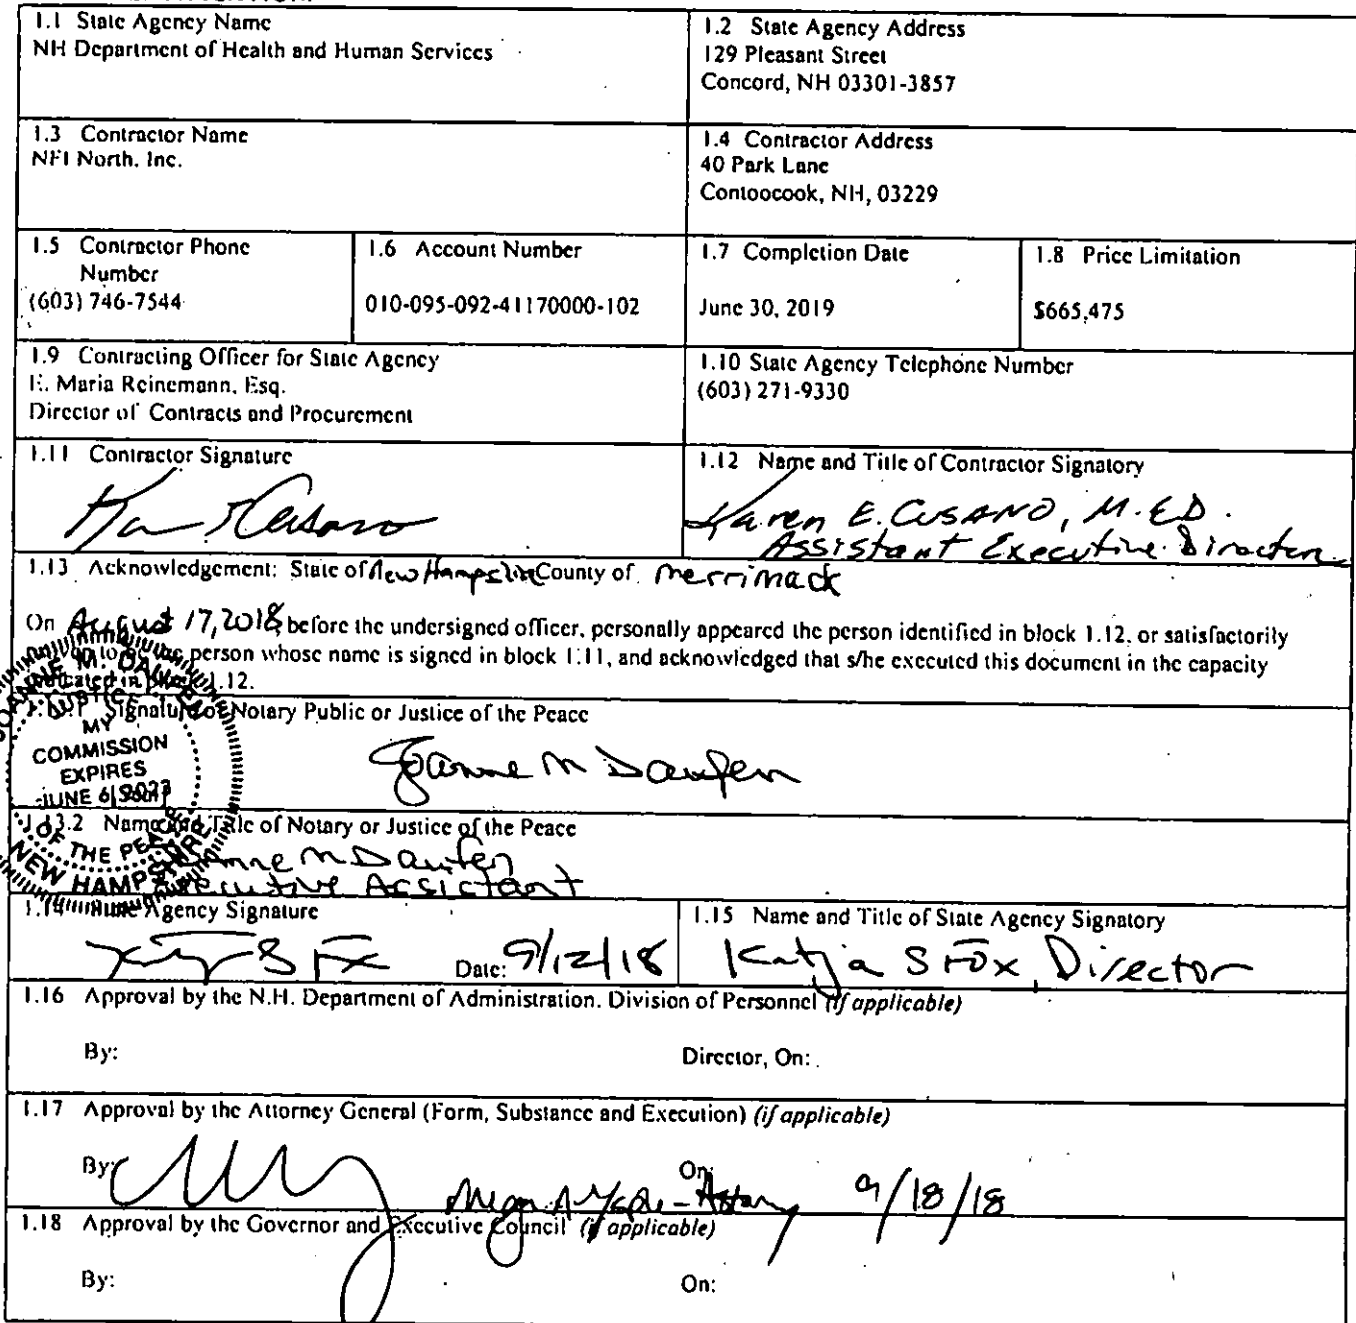 1.1 State Agency Name
NH Department of Health and Human Services
1.2 State Agency Address
129 Pleasant Street
Concord, NH 03301-3857
1.3 Contractor Name
NFI North, Inc.
1.4 Contractor Address
40 Park Lane
Contoocook, NH, 03229
1.5 Contractor Phone
Number
(603) 746-7544
1.6 Account Number
010-095-092-41170000-102
1.7 Completion Date
June 30, 2019
1.8 Price Limitation
$665,475
1.9 Contracting Officer for State Agency
E. Maria Reinemann, Esq.
Director of Contracts and Procurement
1.10 State Agency Telephone Number
(603) 271-9330
1.11 Contractor Signature
1.12 Name and Title of Contractor Signatory
Karen E. Cusano, M.ED.
Assistant Executive Director
1.13 Acknowledgement: State of New Hampshire County of Merrimack
On August 17, 2018, before the undersigned officer, personally appeared the person identified in block 1.12, or satisfactorily
person whose name is signed in block 1.11, and acknowledged that s/he executed this document in the capacity
indicated in block 1.12.
Signature of Notary Public or Justice of the Peace
Joanne M Daufen
JOANNE M.
JUSTICE
MY
COMMISSION
EXPIRES
JUNE 6
OF THE PEACE
NEW HAMPSHIRE
1.13.2 Name and Title of Notary or Justice of the Peace
Joanne M Daufen
Executive Assistant
1.14 Agency Signature
Date: 9/12/18
1.15 Name and Title of State Agency Signatory
Katja S Fox, Director
1.16 Approval by the N.H. Department of Administration. Division of Personnel (if applicable)
By: Director, On:
1.17 Approval by the Attorney General (Form, Substance and Execution) (if applicable)
By: On: 9/18/18
1.18 Approval by the Governor and Executive Council (if applicable)
By: On: